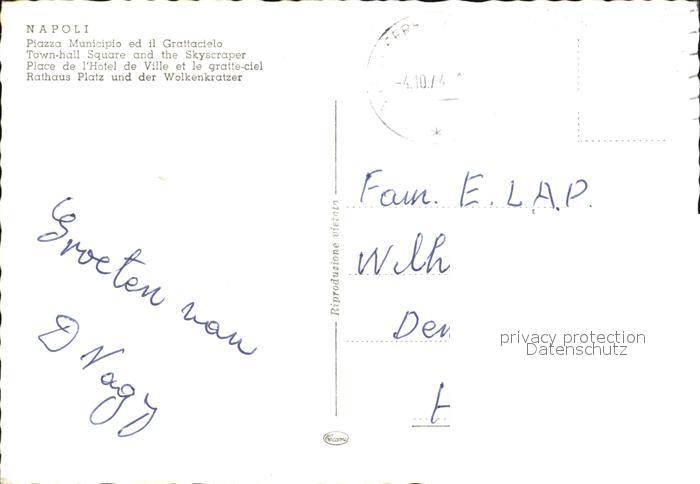 NAPOLI
Piazza Municipio ed il Grattacielo
Town-hall Square and the Skyscraper
Place de l'Hotel de Ville et le gratte-ciel
Rathaus Platz und der Wolkenkratzer
-4.10.74
Fam. E. L.A.P.
Wilh
Den
H
Groeten van
D Nagy
Riproduzione vietata
privacy protection
Datenschutz